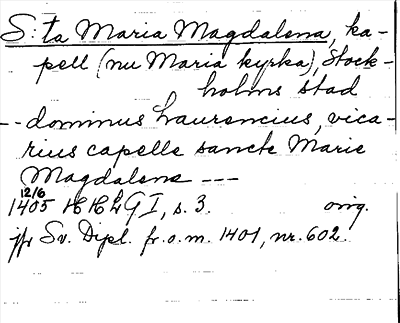 S:ta Maria Magdalena, ka-
pell (nu Maria kyrka), Stock-
holms stad
-- dominus Laurencius, vica-
rius capelle sancte Marie
Magdalene ---
12/6
1405 HHLG I, s. 3. orig.
jfr Sv. Dipl. fr.o.m. 1401, nr. 602.